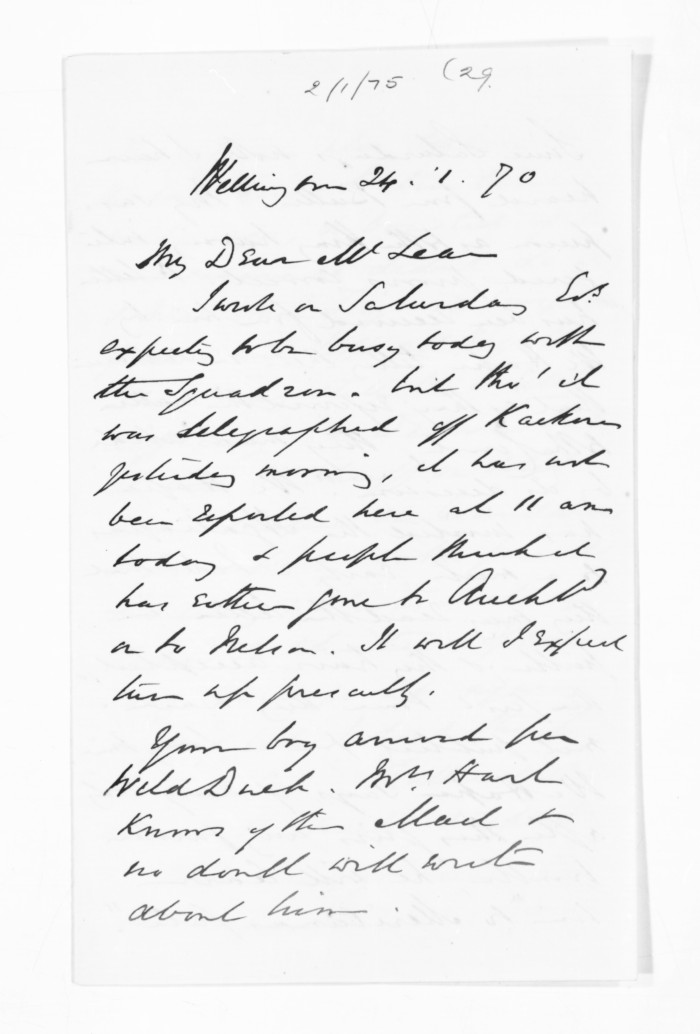 2/1/75 (29.
Wellington 24. 1. 70
My Dear McLean
I wrote on Saturday Evg
expecting to be busy today with
the Squadron. but tho' it
was telegraphed off Kaikora
yesterday morning, it has not
been reported here at 11 am
today & people think it
has either gone to Auckld
or to Nelson. It will I expect
turn up presently.
Your boy arrived per
Wild Duck. Mrs Hart
knows of the Mail &
no doubt will write
about him.